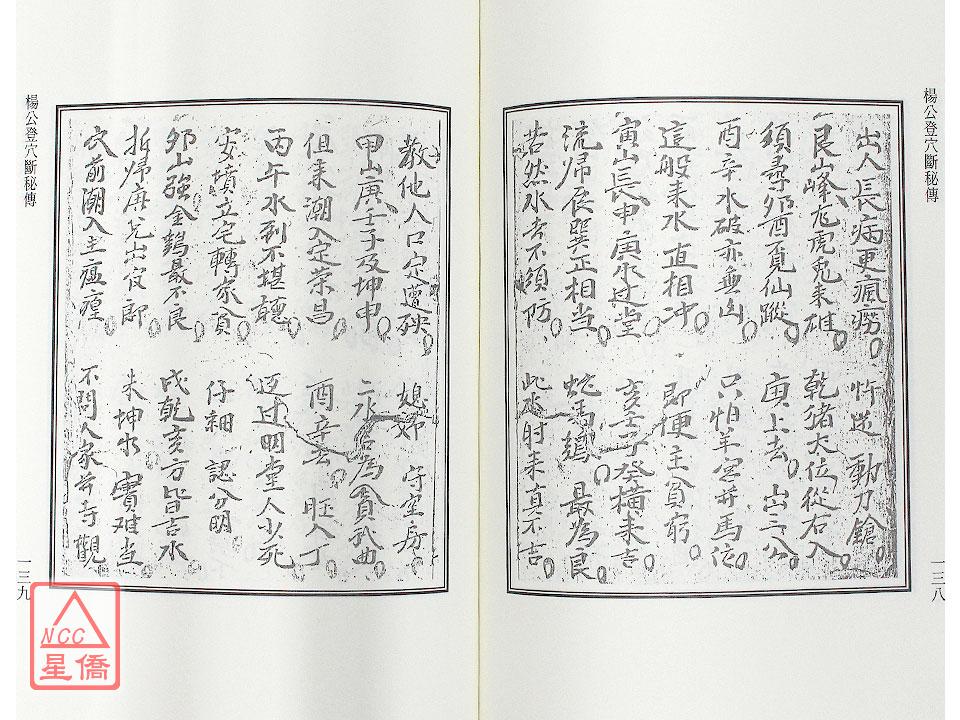 楊公登穴斷秘傳
出入長病更瘋癆 忤逆動刀鎗
艮山峰 虎兔來雄 乾猪犬位從右入
須尋卯酉覓仙蹤 庚上去 出三公
酉辛水破亦無凶 只怕羊宮并馬位
這般来水直相冲 即便主貧窮
寅山長申庚水过堂 亥壬子癸橫来吉
流歸辰巽正相当 蛇馬 最為良
若然水去不須防 此水肘来真不吉
一三八
教他人口定遭殃 媳婦守空房
甲山庚壬子及坤申 二水名為貪武曲
但来潮入定荣昌 酉辛去 旺人丁
丙午水到不堪聽 逆过明堂人少死
安墳立宅轉家貧 仔細認分明
卯山強金鷄最不良 戌乾亥方皆吉水
拆歸庚兑出官郎 未坤水 實难当
穴前潮入主瘟𤶊 不問人家并寺觀
楊公登穴斷秘傳
一三九
NCC
星僑